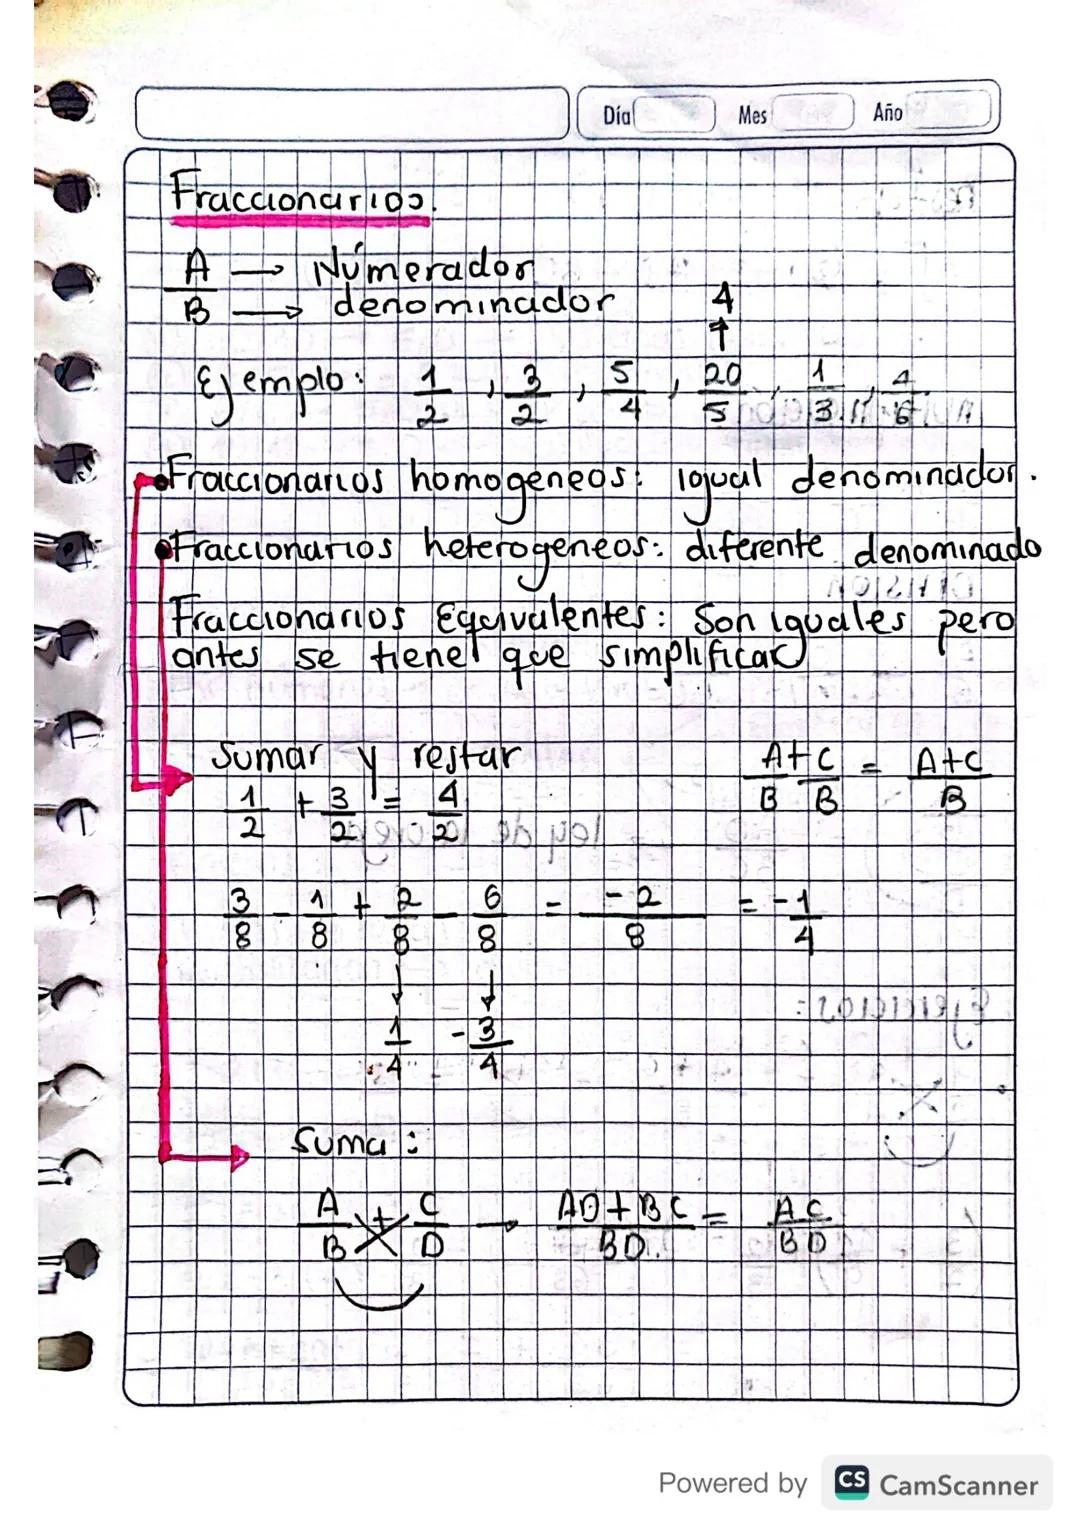 Día Mes Año
Fraccionarios.
A/B → Númerador
→ denominador
4
↑
Ejemplo: 1/2 , 3/2 , 5/4 , 20/5 , 1/3 , 4/6
•Fraccionarios homogeneos: igual denominador.
•Fraccionarios heterogeneos: diferente denominado
Fraccionarios Equivalentes: Son iguales pero
antes se tiene que simplificar
Sumar y restar
A/B + C/B = A+C/B
1/2 + 3/2 = 4/2
3/8 - 1/8 + 2/8 - 6/8 = -2/8 = -1/4
↓ ↓
1/4 -3/4
Suma:
A/B + C/D → AD+BC/BD. = AC/BD
Powered by CS CamScanner